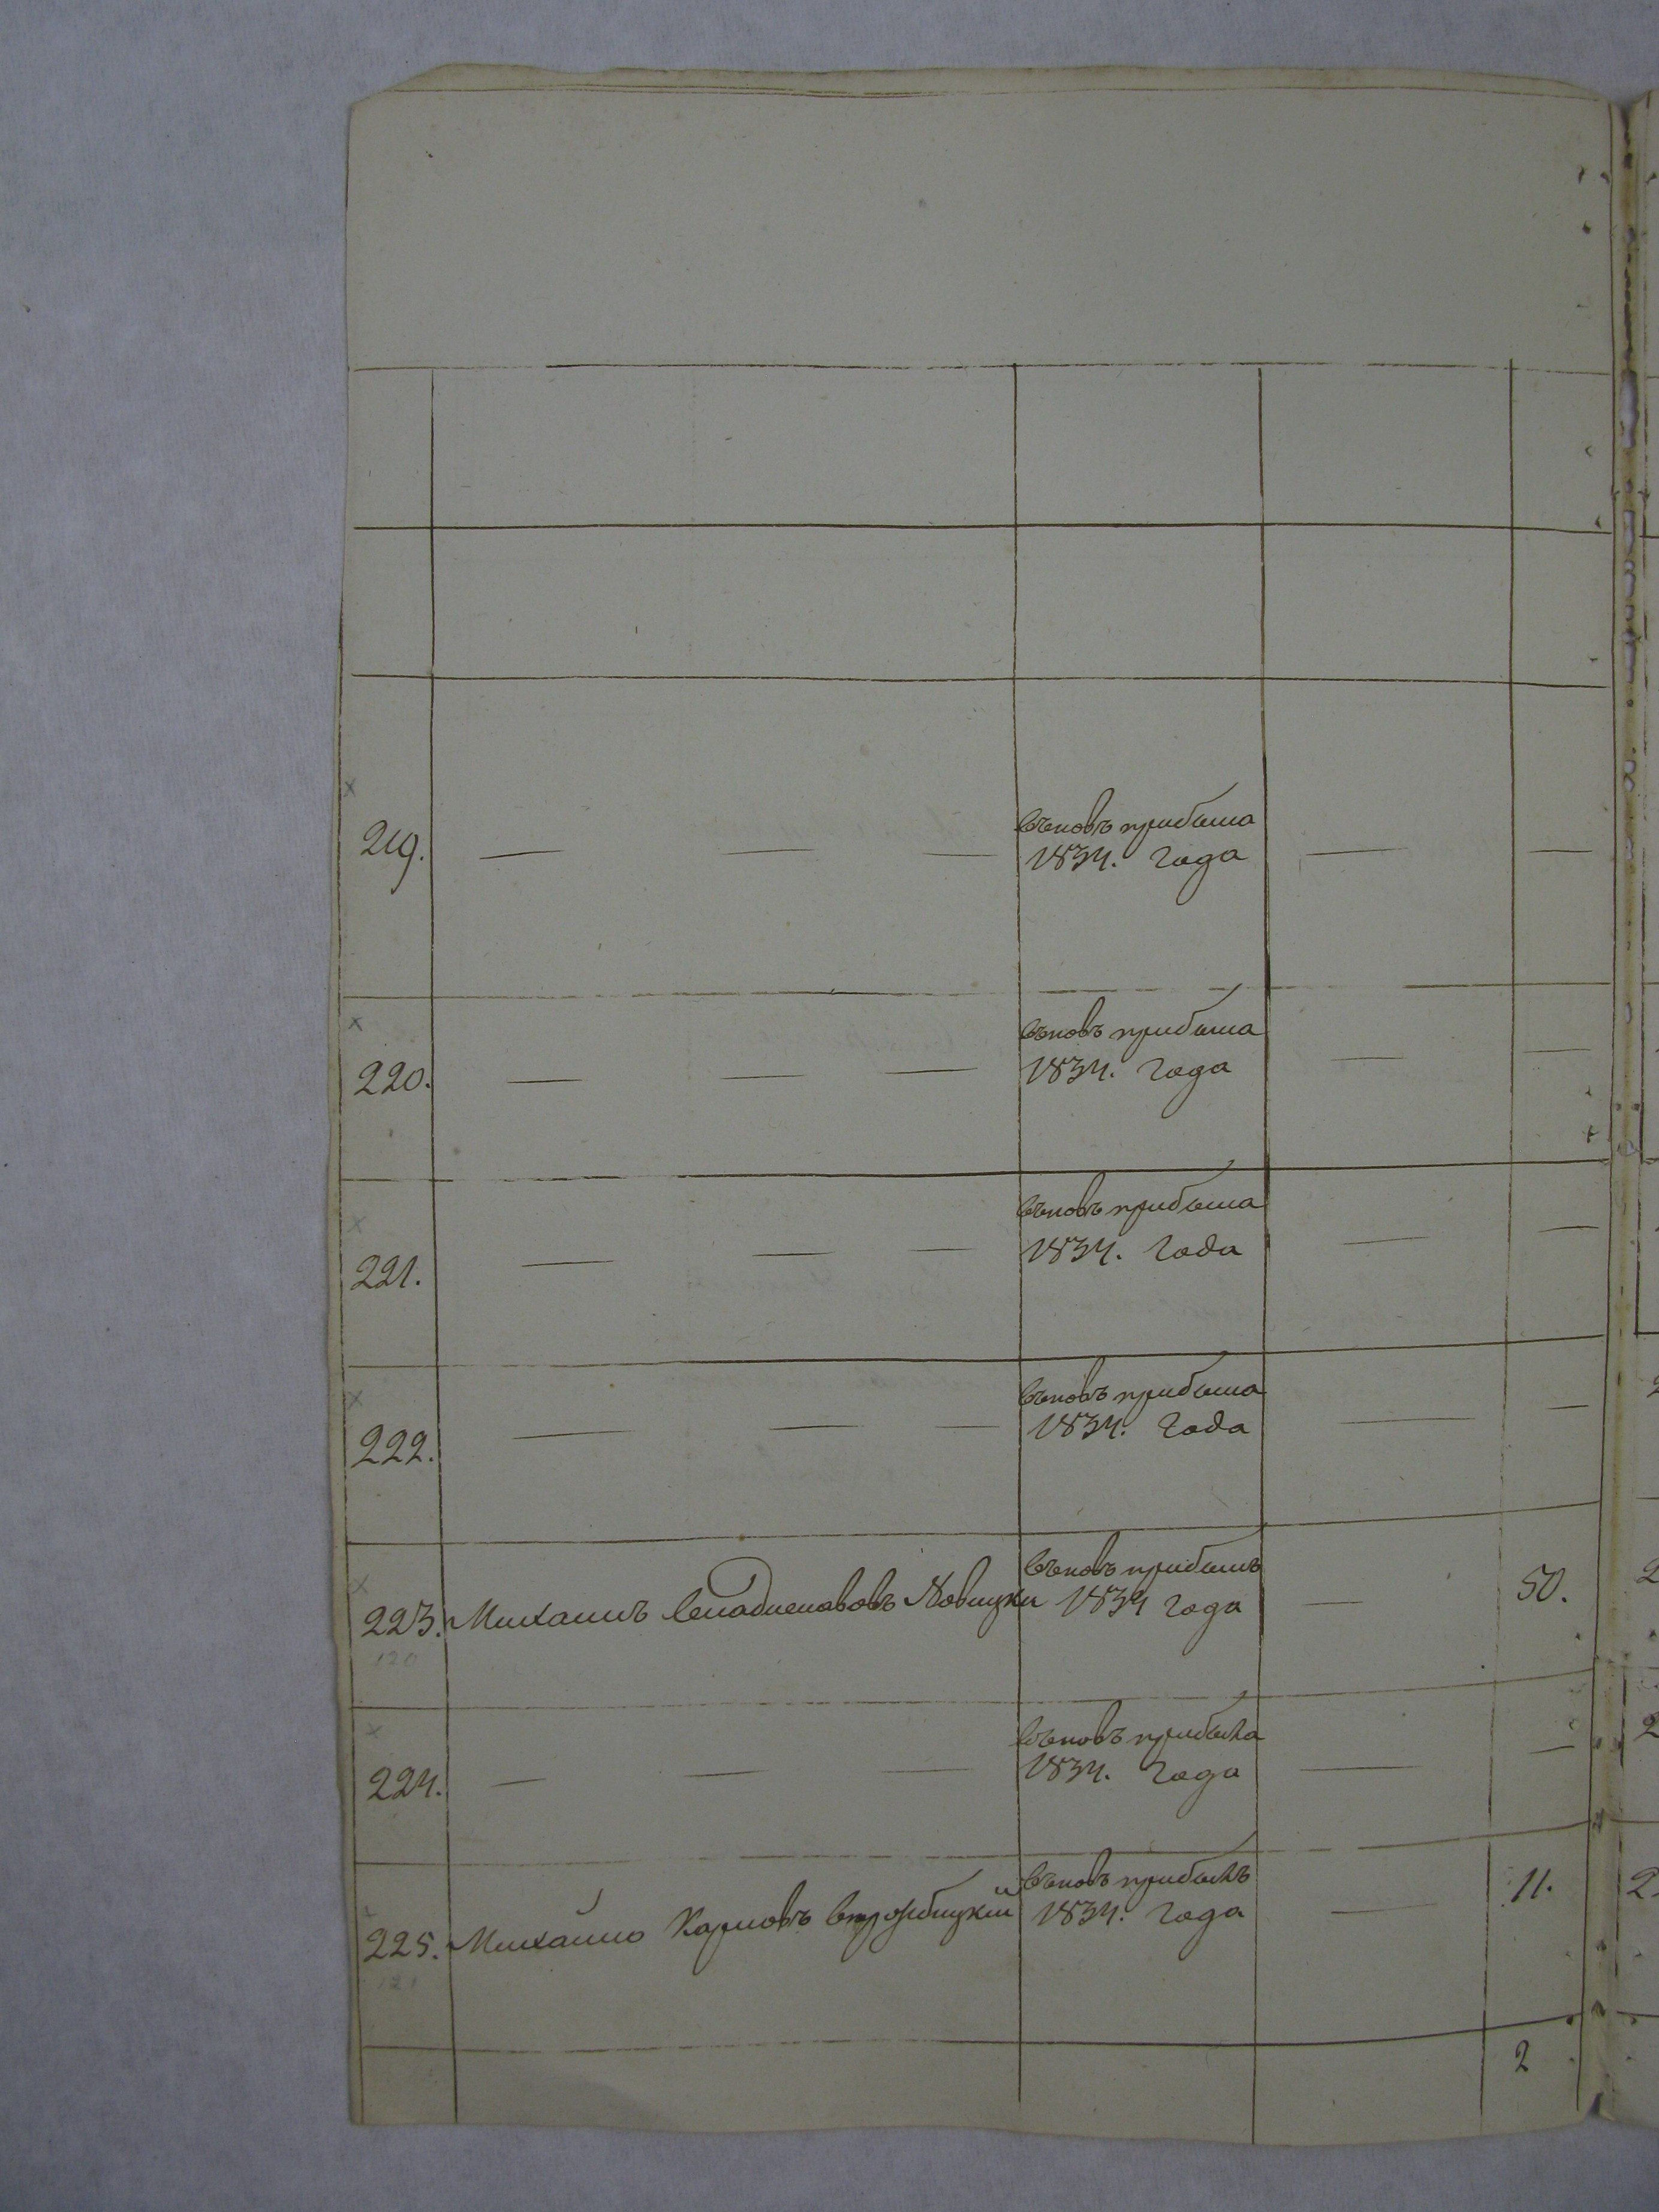 219. — — — въновъ прибыла — —
1834. года
220. — — — въновъ прибыла — —
1834. года
221. — — — въновъ прибыла — —
1834. года
222. — — — въновъ прибыла — —
1834. года
въновъ прибылъ
223. Михаилъ Новицки 1834 года — 50.
120
въновъ прибыла
224. — — — 1834. года — —
въновъ прибылъ
225. Михайло Карповъ 1834. года — 11.
121
2